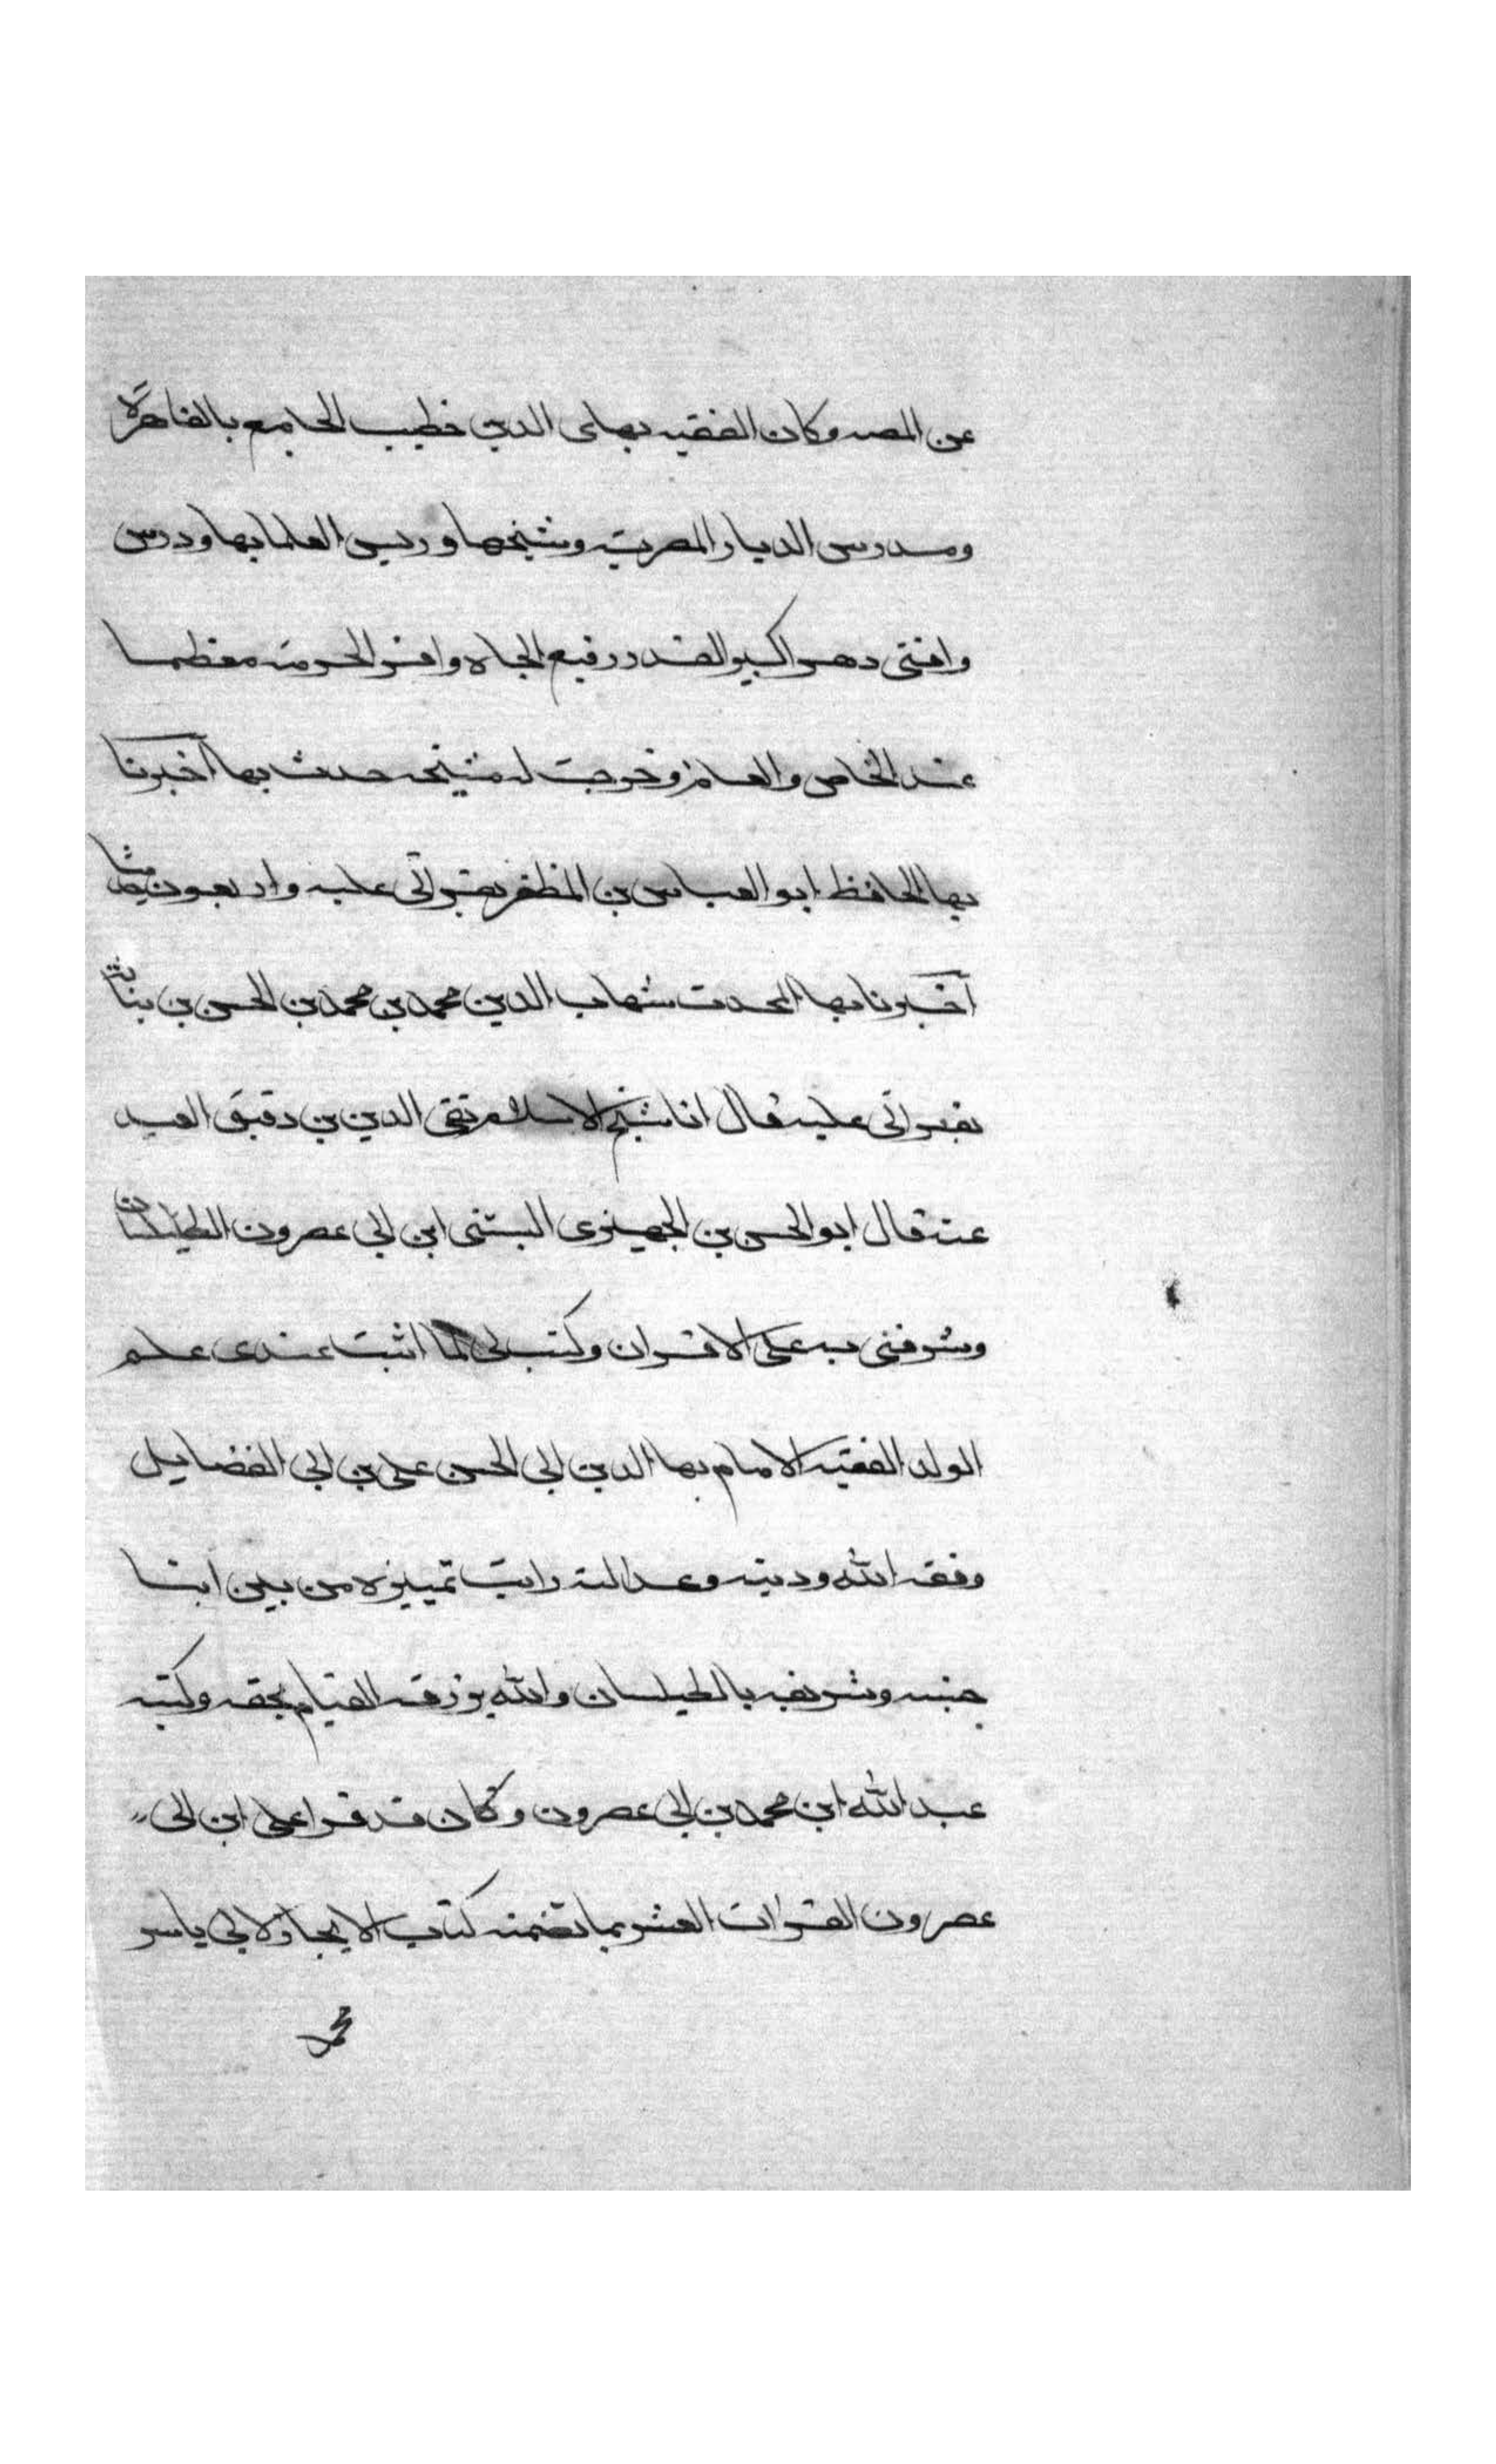 عن المصه وكان الفقيه بهاى الدين خطيب الجامع بالقاهرة
ومدرس الديار المصرية وشيخها وريس العلما بها ودرس
وافتى دهرا كبير القدر رفيع الجاه وافر الحرمة معظما
عند الخاص والعام وخرجت له مشيخه حدث بها اخبرنا
بها الحافظ ابو العباس بن المظفر بقراتى عليه واربعون
اخبرنا بها المحدث شهاب الدين محمد بن محمد بن الحسن بن بناتة
بقراتى عليه قال انا شيخ الاسلام تقى الدين بن دقيق العيد
عنه قال ابو الحسن بن الجميزى البسنى ابن ابى عصرون الطيلسان
وشرفنى به على الاقران وكتب لى لما اثبت عندى علم
الولد الفقيه الامام بها الدين ابى الحسن على بن ابى الفضايل
وفقه الله ودينه وعدالته رايت تمييزه من بين ابنا
جنسه وشريفه بالطيلسان والله يرزقه القيام بحقه وكتبه
عبد الله ابن محمد بن ابى عصرون وكان قد قرا على ابن ابى
عصرون القراات العشر بما تضمنه كتاب الايجاز لابى ياسر